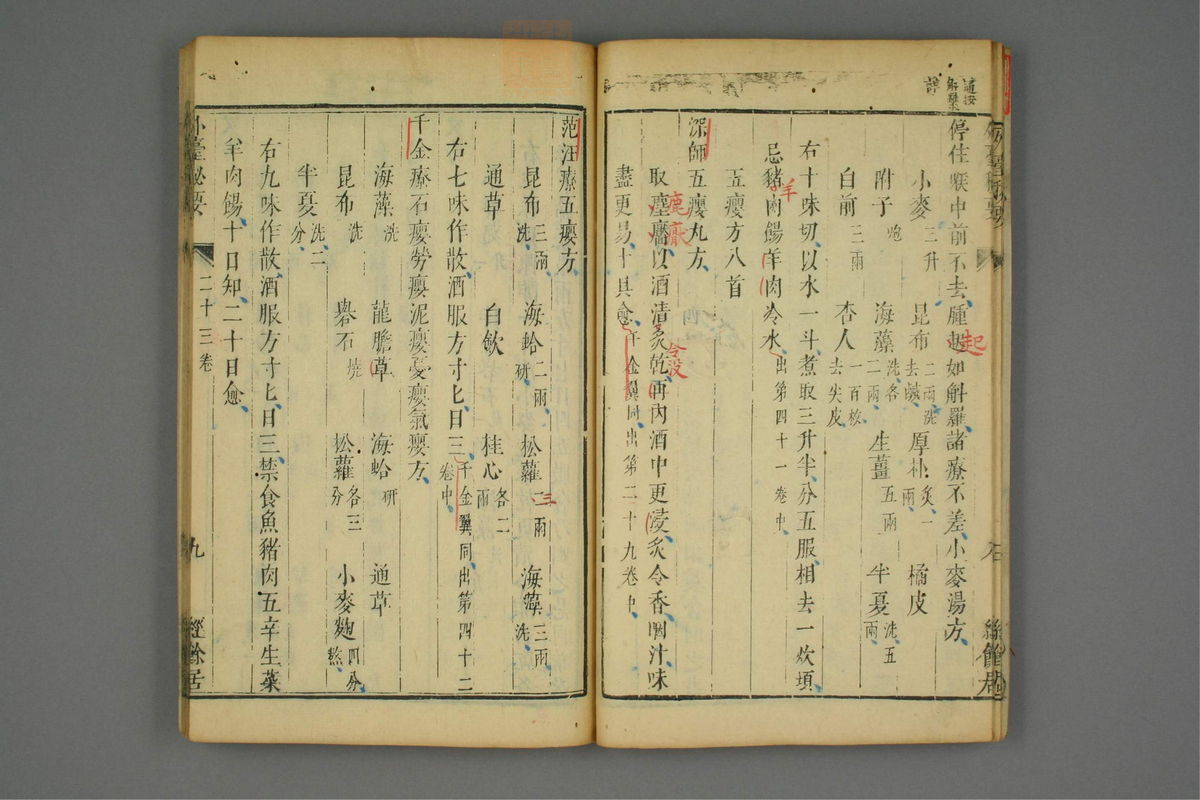 停住喉中前不去腫起如斛羅諸療不差小麥湯方
小麥三升 昆布二兩洗去鹹 厚朴炙一兩 橘皮
附子炮 海藻洗各二兩 生薑五兩 半夏洗五兩
白前三兩 杏人一百枚去尖皮
右十味切以水一斗煮取三升半分五服相去一炊頃
忌豬肉餳羊肉冷水出第四十一卷中
五癭方八首
深師五癭丸方
取鹿靨以酒漬炙乾再內酒中更浸炙令香嚥汁味
盡更易十具愈千金翼同出第二十九卷中
范汪療五癭方
昆布三兩洗 海蛤二兩研 松蘿二兩 海藻三兩洗
通草 白斂 桂心各二兩
右七味作散酒服方寸匕日三千金翼同出第四十二卷中
千金療石癭勞癭泥癭憂癭氣癭方
海藻洗 龍膽草 海蛤研 通草
昆布洗 礜石燒 松蘿各三分 小麥麴四分熬
半夏二分洗
右九味作散酒服方寸匕日三禁食魚豬肉五辛生菜
羊肉餳十日知二十日愈
外臺祕要 二十三卷 九 經餘居